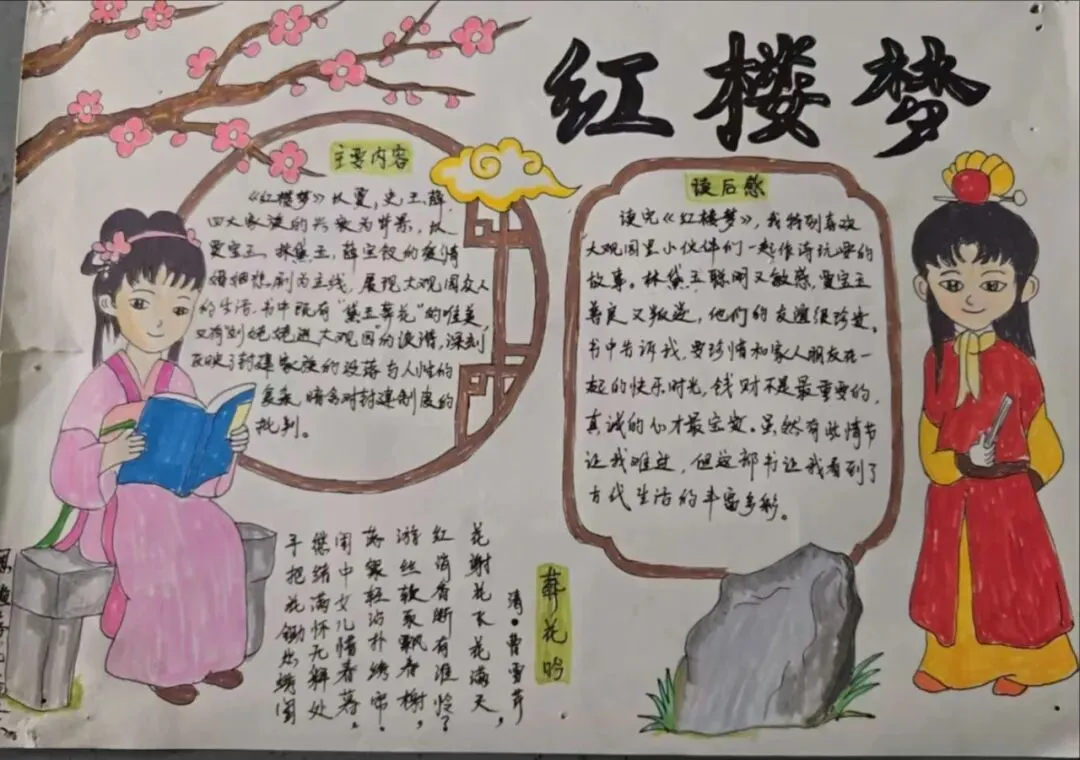 红楼梦
主要内容
《红楼梦》以贾，史王薛
四大家族的兴衰为背景，以
贾宝玉、林黛玉，薛宝钗的爱情
婚姻悲剧为主线，展现大观园众人
的生活，书中既有“黛玉葬花”的唯美
又有刘姥姥进大观园”的诙谐，深刻
反映了封建家族的没落与人性的
复杂，暗含对封建制度的
批判。
读后感
读完《红楼梦》，我特别喜欢
大观园里小伙伴们一起作诗玩耍的
故事。林黛玉聪明又敏感，贾宝玉
善良又叛逆，他们的友谊很珍贵。
书中告诉我，要珍惜和家人朋友在一
起的快乐时光，钱财不是最重要的，
真诚的心才最宝贵。虽然有些情节
让我难过，但这部书让我看到了
古代生活的丰富多彩。
葬花吟
清·曹雪芹
花谢花飞花满天，
红消香断有谁怜？
游丝软系飘春榭，
落絮轻沾扑绣帘。
闺中女儿惜春暮，
愁绪满怀无释处
手把花锄出绣闺